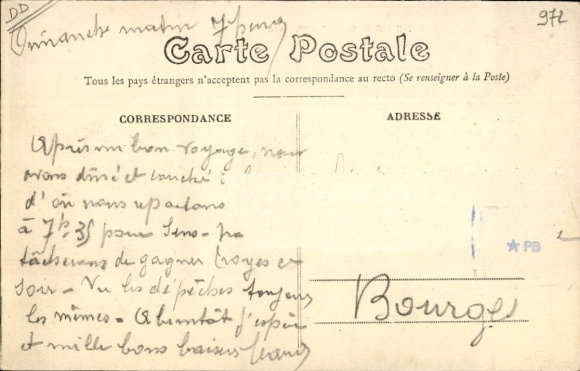 DD
972
Dimanche matin 7 heures
Carte Postale
Tous les pays étrangers n'acceptent pas la correspondance au recto (Se renseigner à la Poste)
CORRESPONDANCE
ADRESSE
Après un bon voyage, nous
avons diné et couché à
d'où nous repartons
à 7h35 pour Sens -
tâcherons de gagner Troyes ce
soir - Vu les dépêches toujours
les mêmes - A bientôt j'espère
et mille bons baisers
PB
Bourges